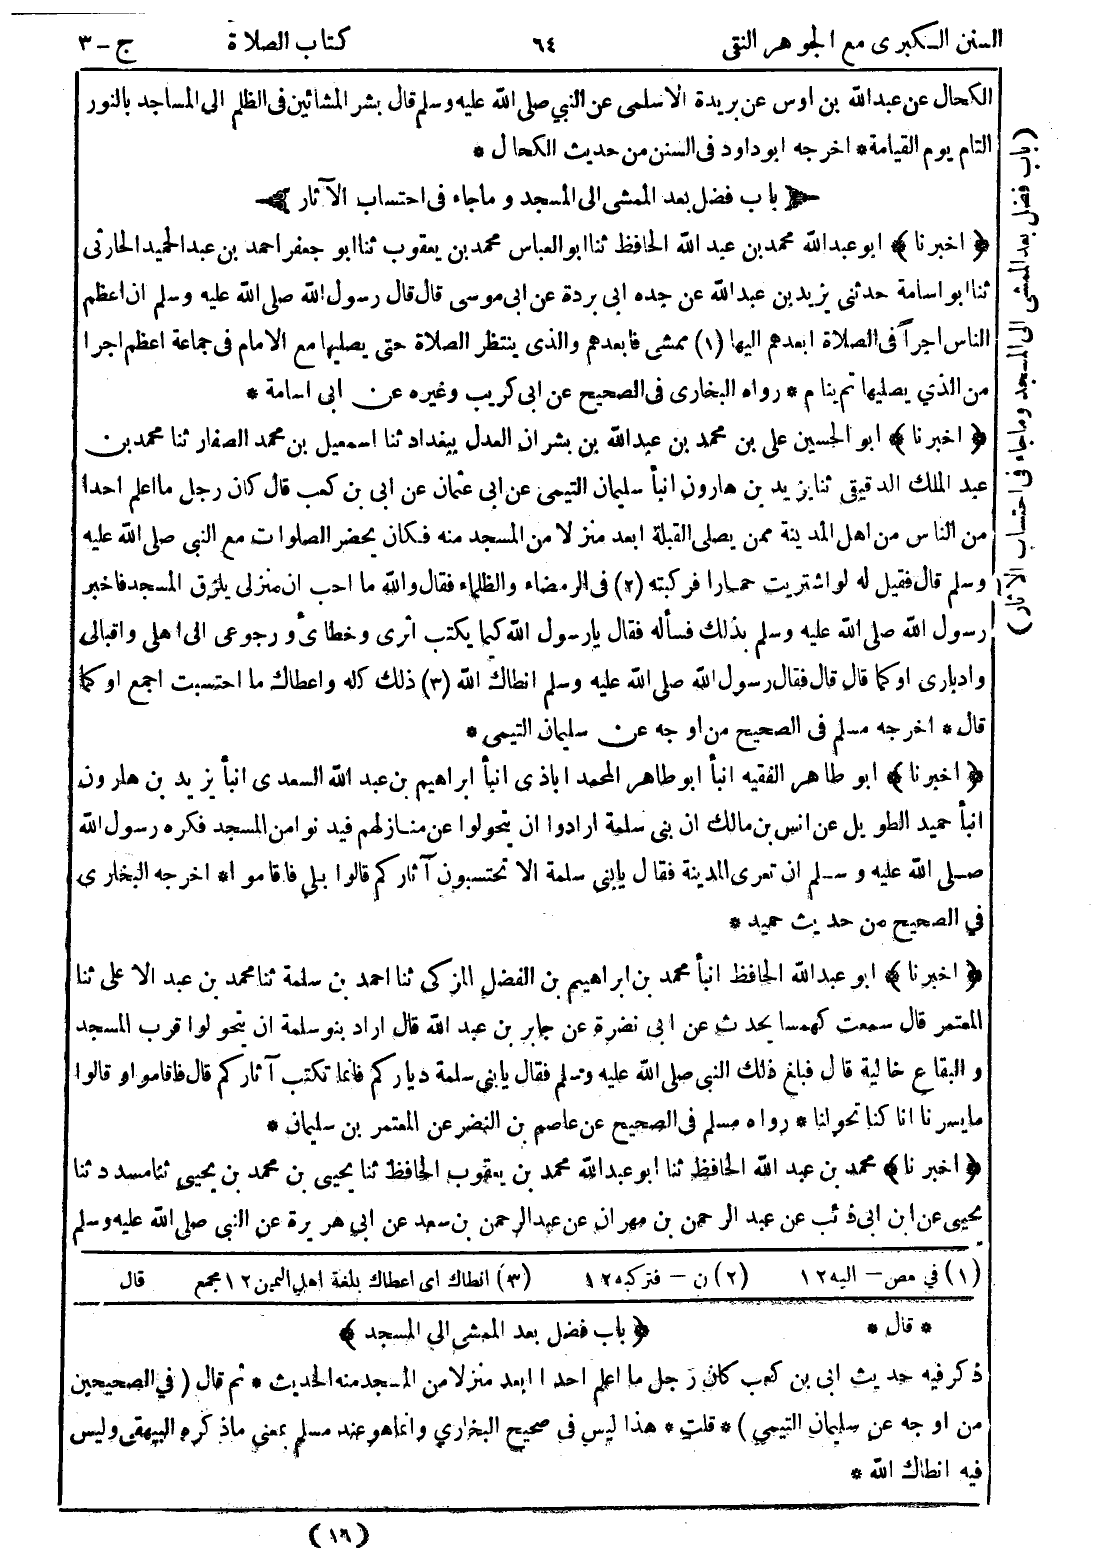 السنن الكبرى مع الجوهر النقى ٦٤ كتاب الصلاة ج - ٣
الكحال عن عبدالله بن اوس عن بريدة الاسلمى عن النبي صلى الله عليه وسلم قال بشر المشائين فى الظلم الى المساجد بالنور
التام يوم القيامة * اخرجه ابوداود فى السنن من حديث الكحال *
باب فضل بعد الممشى الى المسجد وماجاء فى احتساب الآثار
﴿ اخبرنا ﴾ ابو عبدالله محمد بن عبد الله الحافظ ثنا ابو العباس محمد بن يعقوب ثنا ابو جعفر احمد بن عبد الحميد الحارثى
ثنا ابو اسامة حدثنى يزيد بن عبدالله عن جده ابى بردة عن ابى موسى قال قال رسول الله صلى الله عليه وسلم ان اعظم
الناس اجراً فى الصلاة ابعدهم اليها (١) ممشى فابعدهم والذى ينتظر الصلاة حتى يصليها مع الامام فى جماعة اعظم اجرا
من الذي يصليها ثم ينام * رواه البخارى فى الصحيح عن ابى كريب وغيره عن ابى اسامة *
﴿ اخبرنا ﴾ ابو الحسين على بن محمد بن عبدالله بن بشران العدل ببغداد ثنا اسمعيل بن محمد الصفار ثنا محمد بن
عبد الملك الدقيقى ثنا يزيد بن هارون انبأ سليمان التيمى عن ابى عثمان عن ابى بن كعب قال كان رجل ما اعلم احدا
من الناس من اهل المدينة ممن يصلى القبلة ابعد منزلا من المسجد منه فكان يحضر الصلوات مع النبى صلى الله عليه
وسلم قال فقيل له لو اشتريت حمارا فركبته (٢) فى الرمضاء والظلماء فقال والله ما احب ان منزلى يلزق المسجد فاخبر
رسول الله صلى الله عليه وسلم بذلك فسأله فقال يارسول الله كيما يكتب اثرى وخطائ ورجوعى الى اهلى واقبالى
وادبارى او كما قال قال فقال رسول الله صلى الله عليه وسلم انطاك الله (٣) ذلك كله واعطاك ما احتسبت اجمع او كما
قال * اخرجه مسلم فى الصحيح من اوجه عن سليمان التيمى *
﴿ اخبرنا ﴾ ابو طاهر الفقيه انبأ ابو طاهر المحمد اباذى انبأ ابراهيم بن عبد الله السعدى انبأ يزيد بن هارون
انبأ حميد الطويل عن انس بن مالك ان بنى سلمة ارادوا ان يتحولوا عن منازلهم فيدنوا من المسجد فكره رسول الله
صلى الله عليه وسلم ان تعرى المدينة فقال يابنى سلمة الا تحتسبون آثاركم قالوا بلى فاقاموا * اخرجه البخارى
في الصحيح من حديث حميد *
﴿ اخبرنا ﴾ ابو عبدالله الحافظ انبأ محمد بن ابراهيم بن الفضل المزكى ثنا احمد بن سلمة ثنا محمد بن عبد الاعلى ثنا
المعتمر قال سمعت كهمسا يحدث عن ابى نضرة عن جابر بن عبد الله قال اراد بنو سلمة ان يتحولوا قرب المسجد
والبقاع خالية قال فبلغ ذلك النبى صلى الله عليه وسلم فقال يابنى سلمة دياركم فانما تكتب آثاركم قال فاقاموا وقالوا
مايسرنا انا كنا تحولنا * رواه مسلم فى الصحيح عن عاصم بن النضر عن المعتمر بن سليمان *
﴿ اخبرنا ﴾ محمد بن عبد الله الحافظ ثنا ابو عبدالله محمد بن يعقوب الحافظ ثنا يحيى بن محمد بن يحيى ثنا مسدد ثنا
يحيى عن ابن ابى ذئب عن عبد الرحمن بن مهران عن عبدالرحمن بن سعد عن ابي هريرة عن النبى صلى الله عليه وسلم
(١) في مص - اليه ١٢ (٢) ن - فتركبه ١٢ (٣) انطاك اى اعطاك بلغة اهل اليمن ١٢ مجمع قال
* قال * ﴿ باب فضل بعد الممشى الى المسجد ﴾
ذكر فيه حديث ابى بن كعب كان رجل ما اعلم احدا ابعد منزلا من المسجد منه الحديث * ثم قال ( في الصحيحين
من اوجه عن سليمان التيمى ) * قلت * هذا ليس في صحيح البخاري وانما هو عند مسلم بمعنى ماذكره البيهقى وليس
فيه انطاك الله *
(١٦)
(باب فضل بعد الممشى الى المسجد وماجاء فى احتساب الآثار)